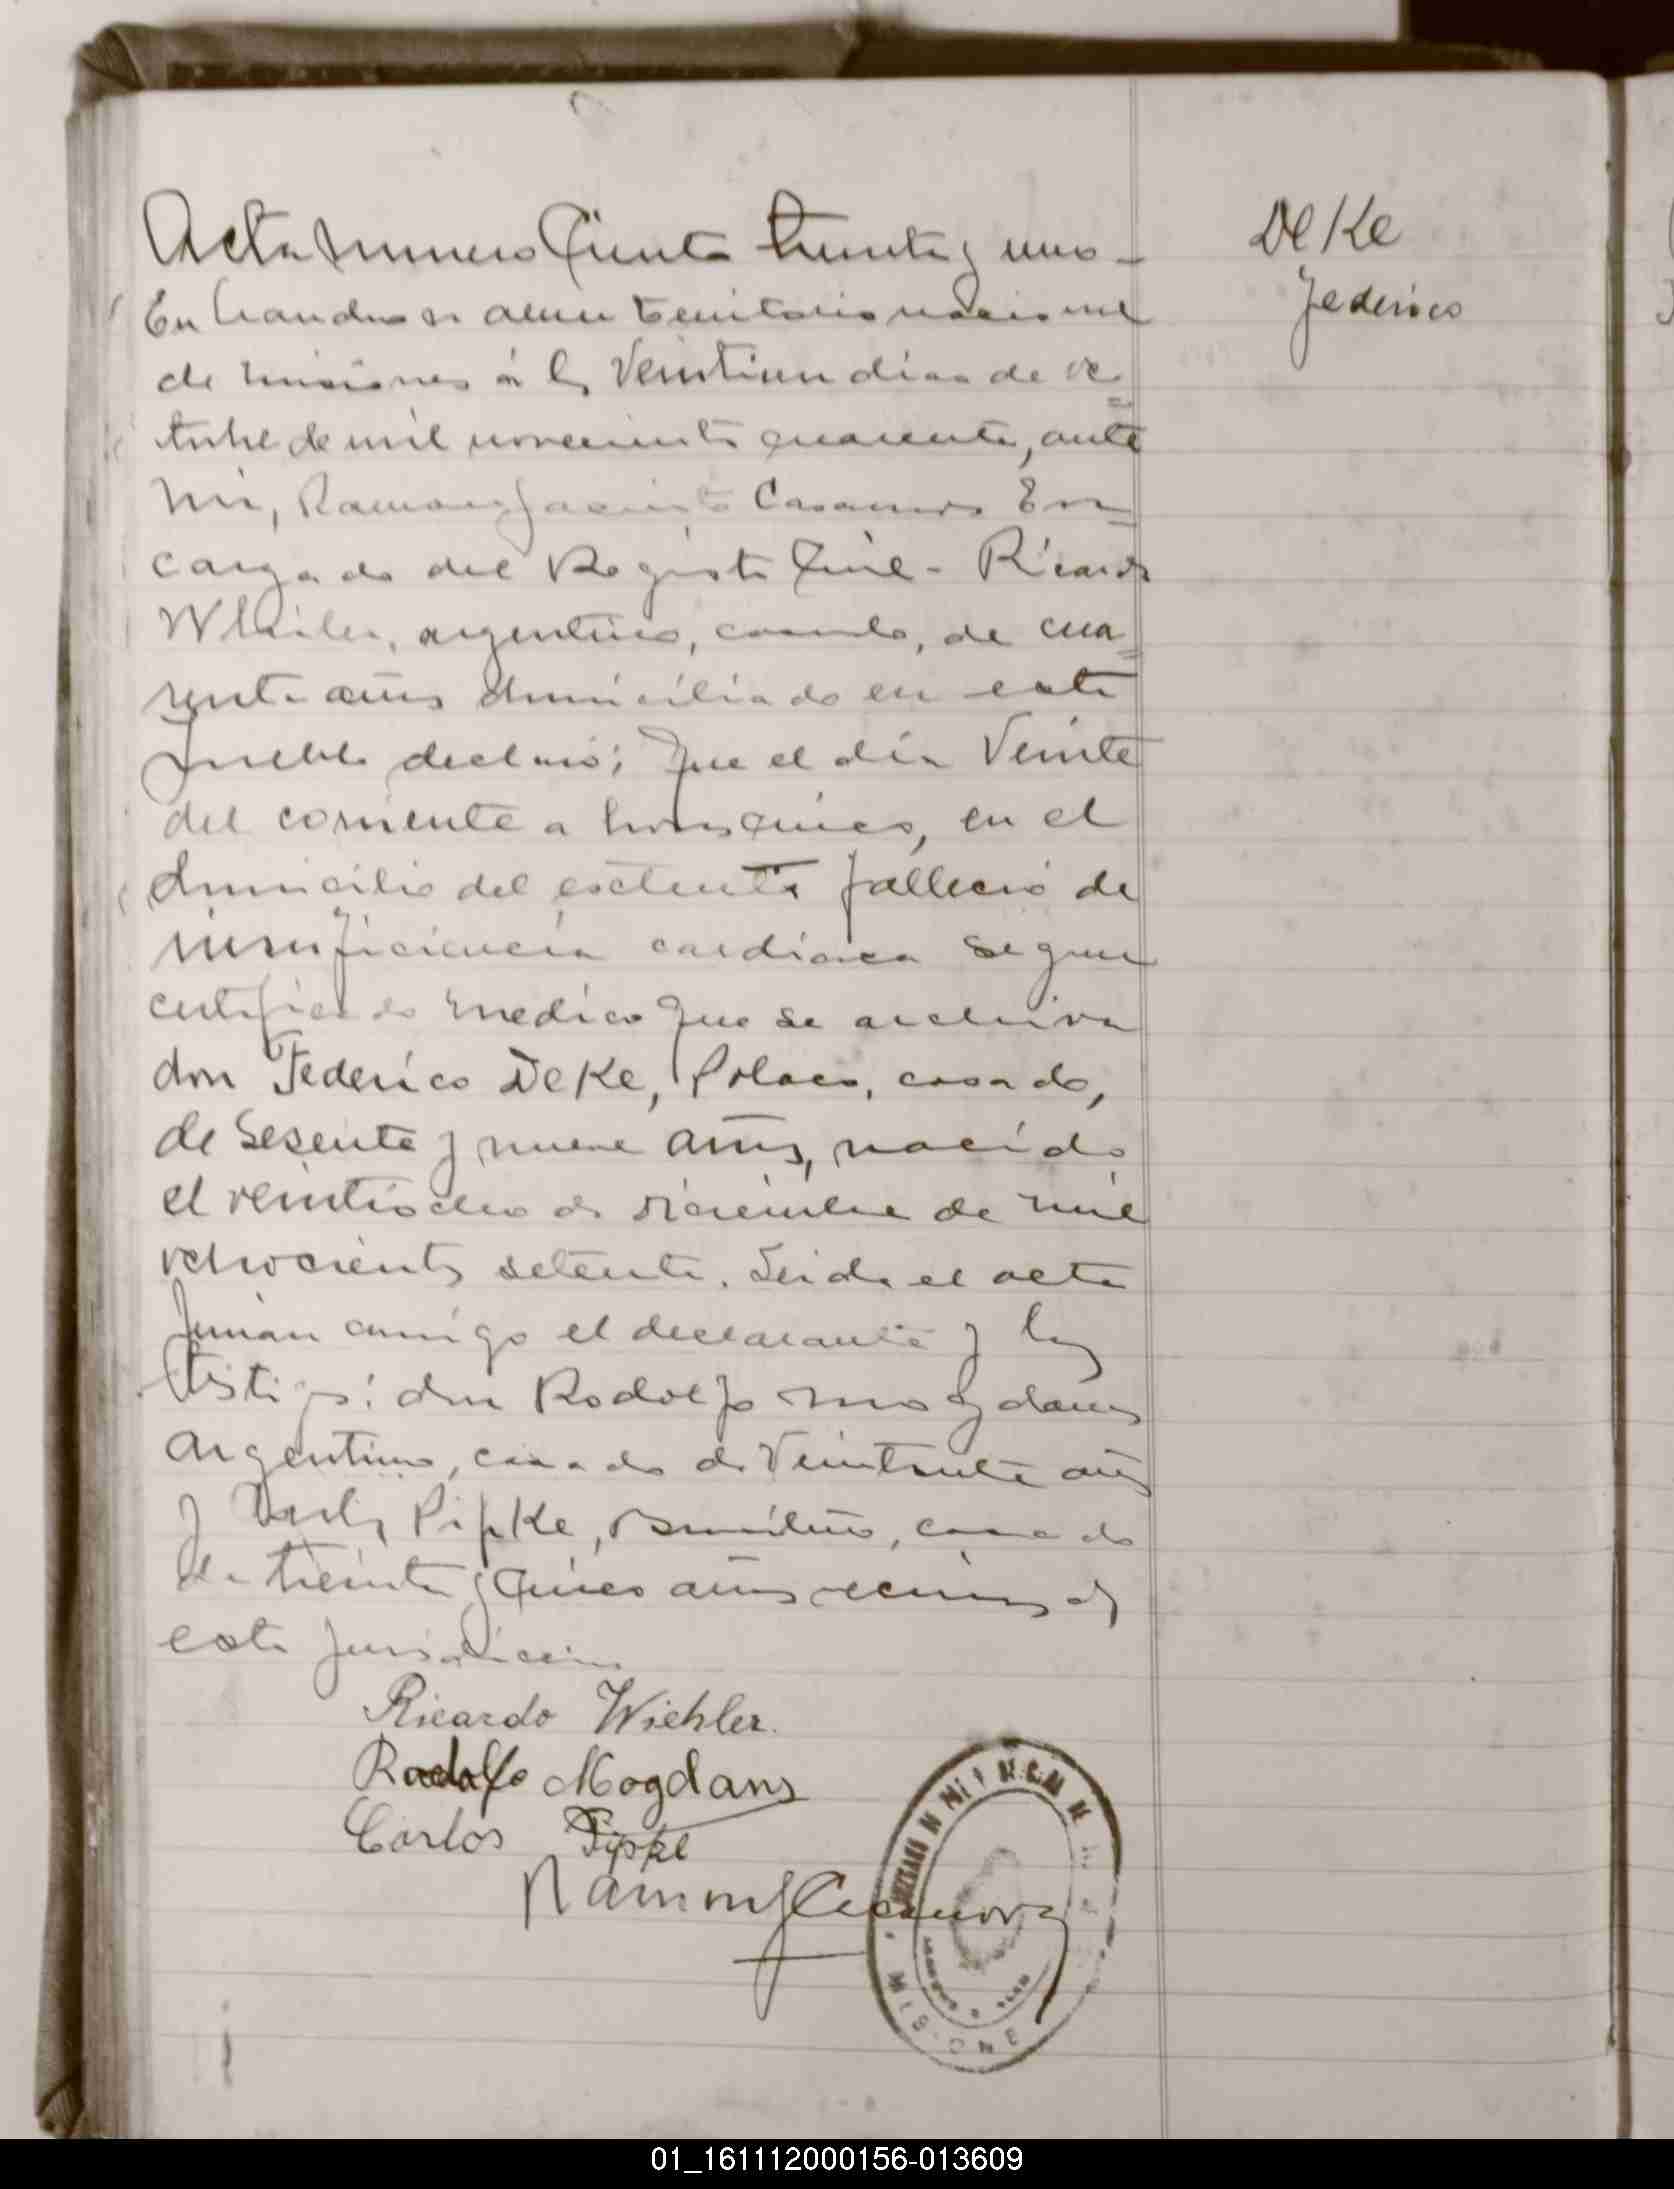 Acta numero Ciento treinta y uno -
En Leandro N alem territorio nacional
de misiones á los Veintiun dias de oc=
tubre de mil novecientos cuarenta, ante
mi, Ramon Jacinto Casanova En=
cargado del Registro Civil - Ricardo
Whiler, argentino, casado, de cua=
renta años domiciliado en este
pueblo declaró; Que el dia Veinte
del corriente a horas cinco, en el
domicilio del falleció de
insuficiencia cardiaca segun
certificado medico que se archiva
don Federico DeKe, Polaco, casado,
de Sesenta y nueve años, nacido
el veintiocho de diciembre de mil
ochocientos setenta. Leida el acta
firman conmigo el declarante y los
testigos: don Rodolfo mogdans
argentino, casado de años
y Carlos PipKe, Brasileño, casado
de treinta y cinco años vecinos de
esta jurisdiccion
Ricardo Wiehler.
Rodolfo Mogdans
Carlos Pipke
Ramon J Casanova
MISIONES
DeKe
Federico
01_161112000156-013609